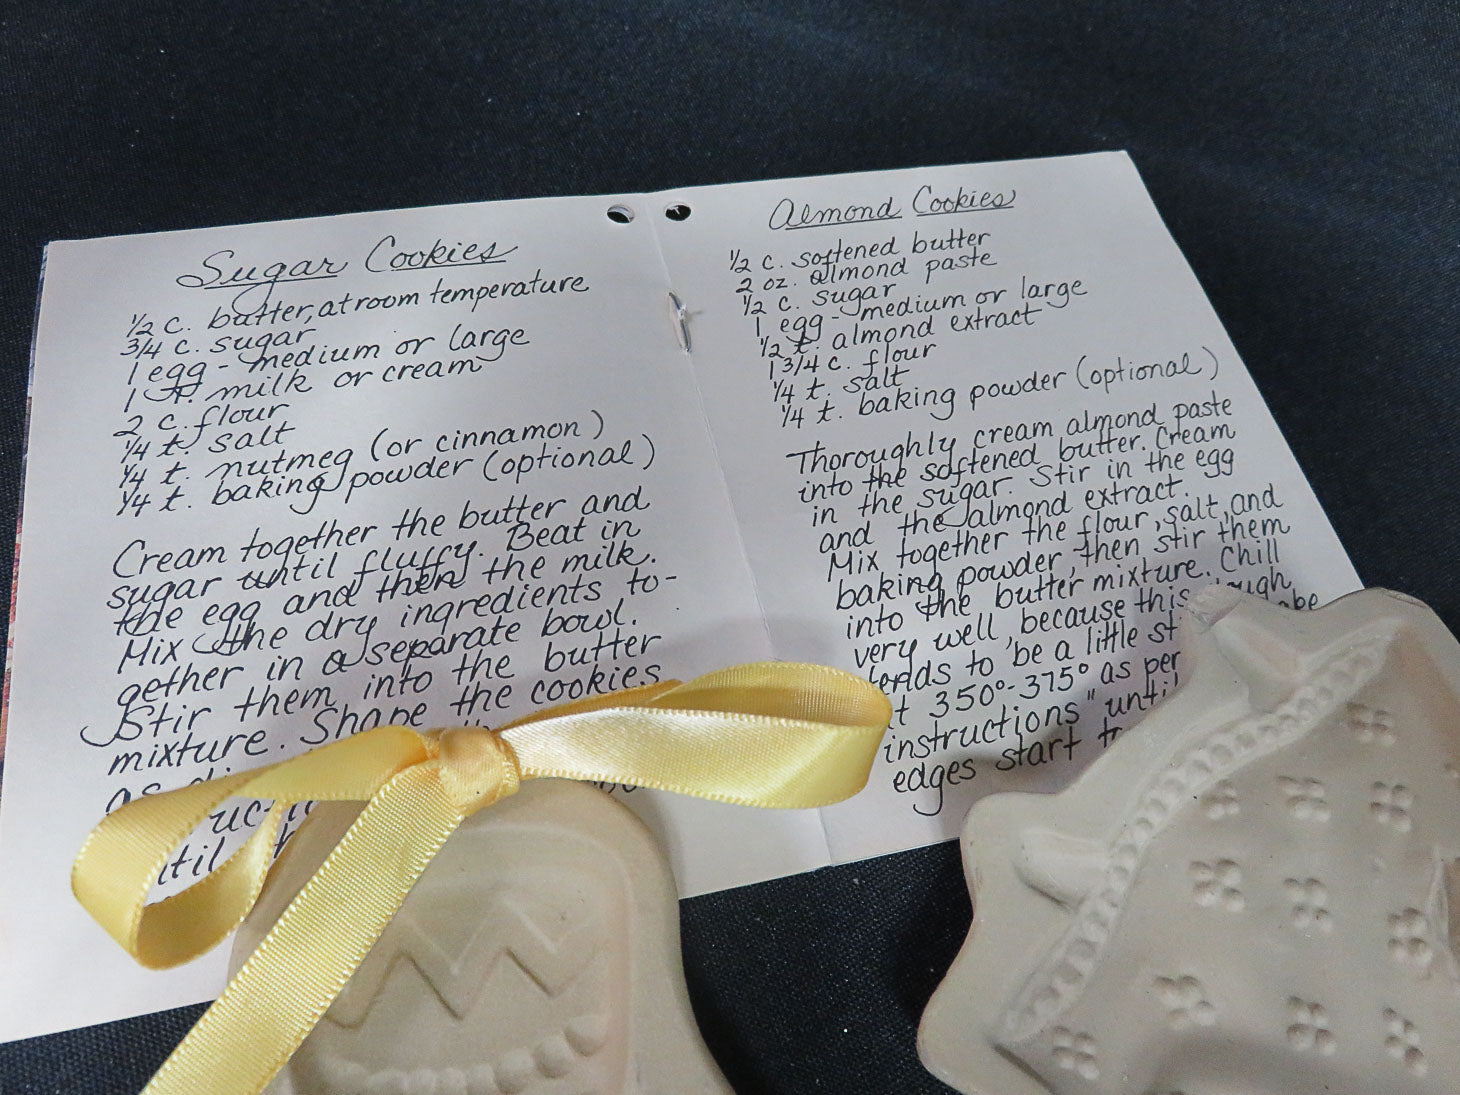 Sugar Cookies
1/2 c. butter, at room temperature
3/4 c. sugar
1 egg - medium or large
1 T. milk or cream
2 c. flour
1/4 t. salt
1/4 t. nutmeg (or cinnamon)
1/4 t. baking powder (optional)
Cream together the butter and
sugar until fluffy. Beat in
the egg and then the milk.
Mix the dry ingredients to-
gether in a separate bowl.
Stir them into the butter
mixture. Shape the cookies
as
Almond Cookies
1/2 c. softened butter
2 oz. almond paste
1/2 c. sugar
1 egg - medium or large
1/2 t. almond extract
1 3/4 c. flour
1/4 t. salt
1/4 t. baking powder (optional)
Thoroughly cream almond paste
into the softened butter. Cream
in the sugar. Stir in the egg
and the almond extract.
Mix together the flour, salt, and
baking powder, then stir them
into the butter mixture. Chill
very well, because this
tends to be a little
350°-375° as per
instructions" until
edges start